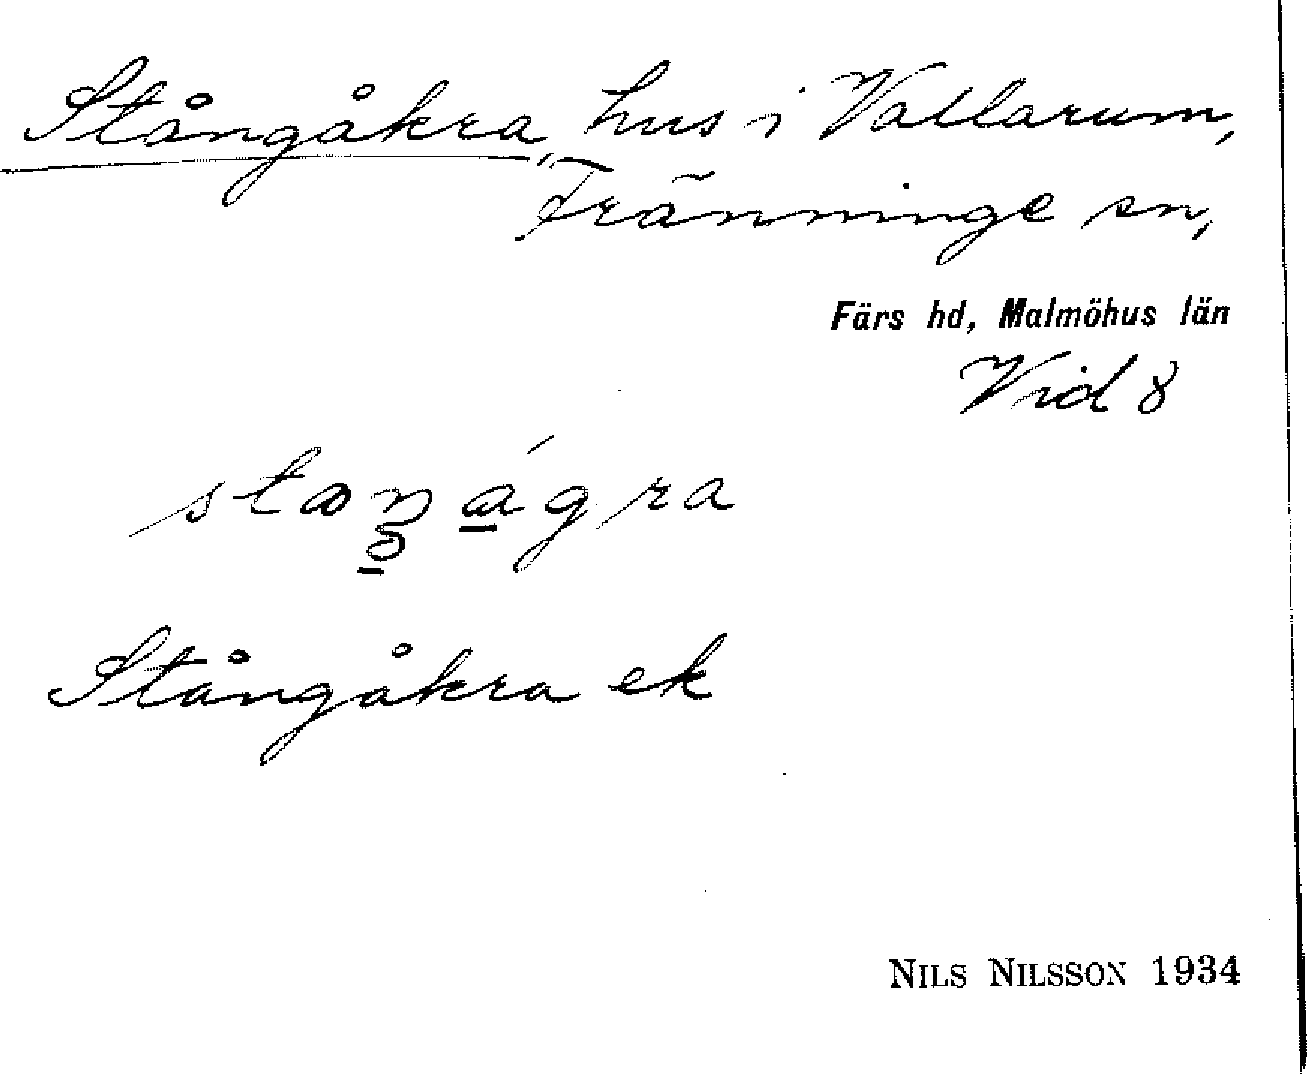 Stångåkra, hus i Vallarum,
Fränninge sn,
Färs hd, Malmöhus län
Vid 8
Stångåkra ek
NILS NILSSON 1934